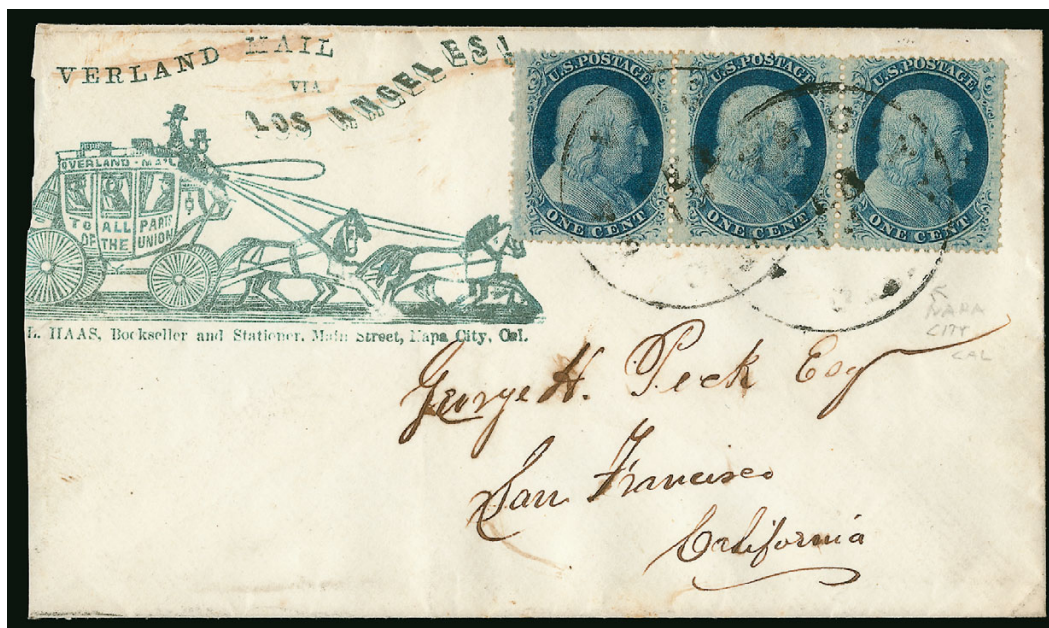 VERLAND MAIL
VIA
LOS ANGELES!
OVERLAND · MAIL
TO ALL PARTS
OF THE UNION
L. HAAS, Bookseller and Stationer, Main Street, Napa City, Cal.
U.S. POSTAGE
ONE CENT
U.S. POSTAGE
ONE CENT
U.S. POSTAGE
ONE CENT
NAPA
CITY
CAL
George H. Peck Esq
San Francisco
California